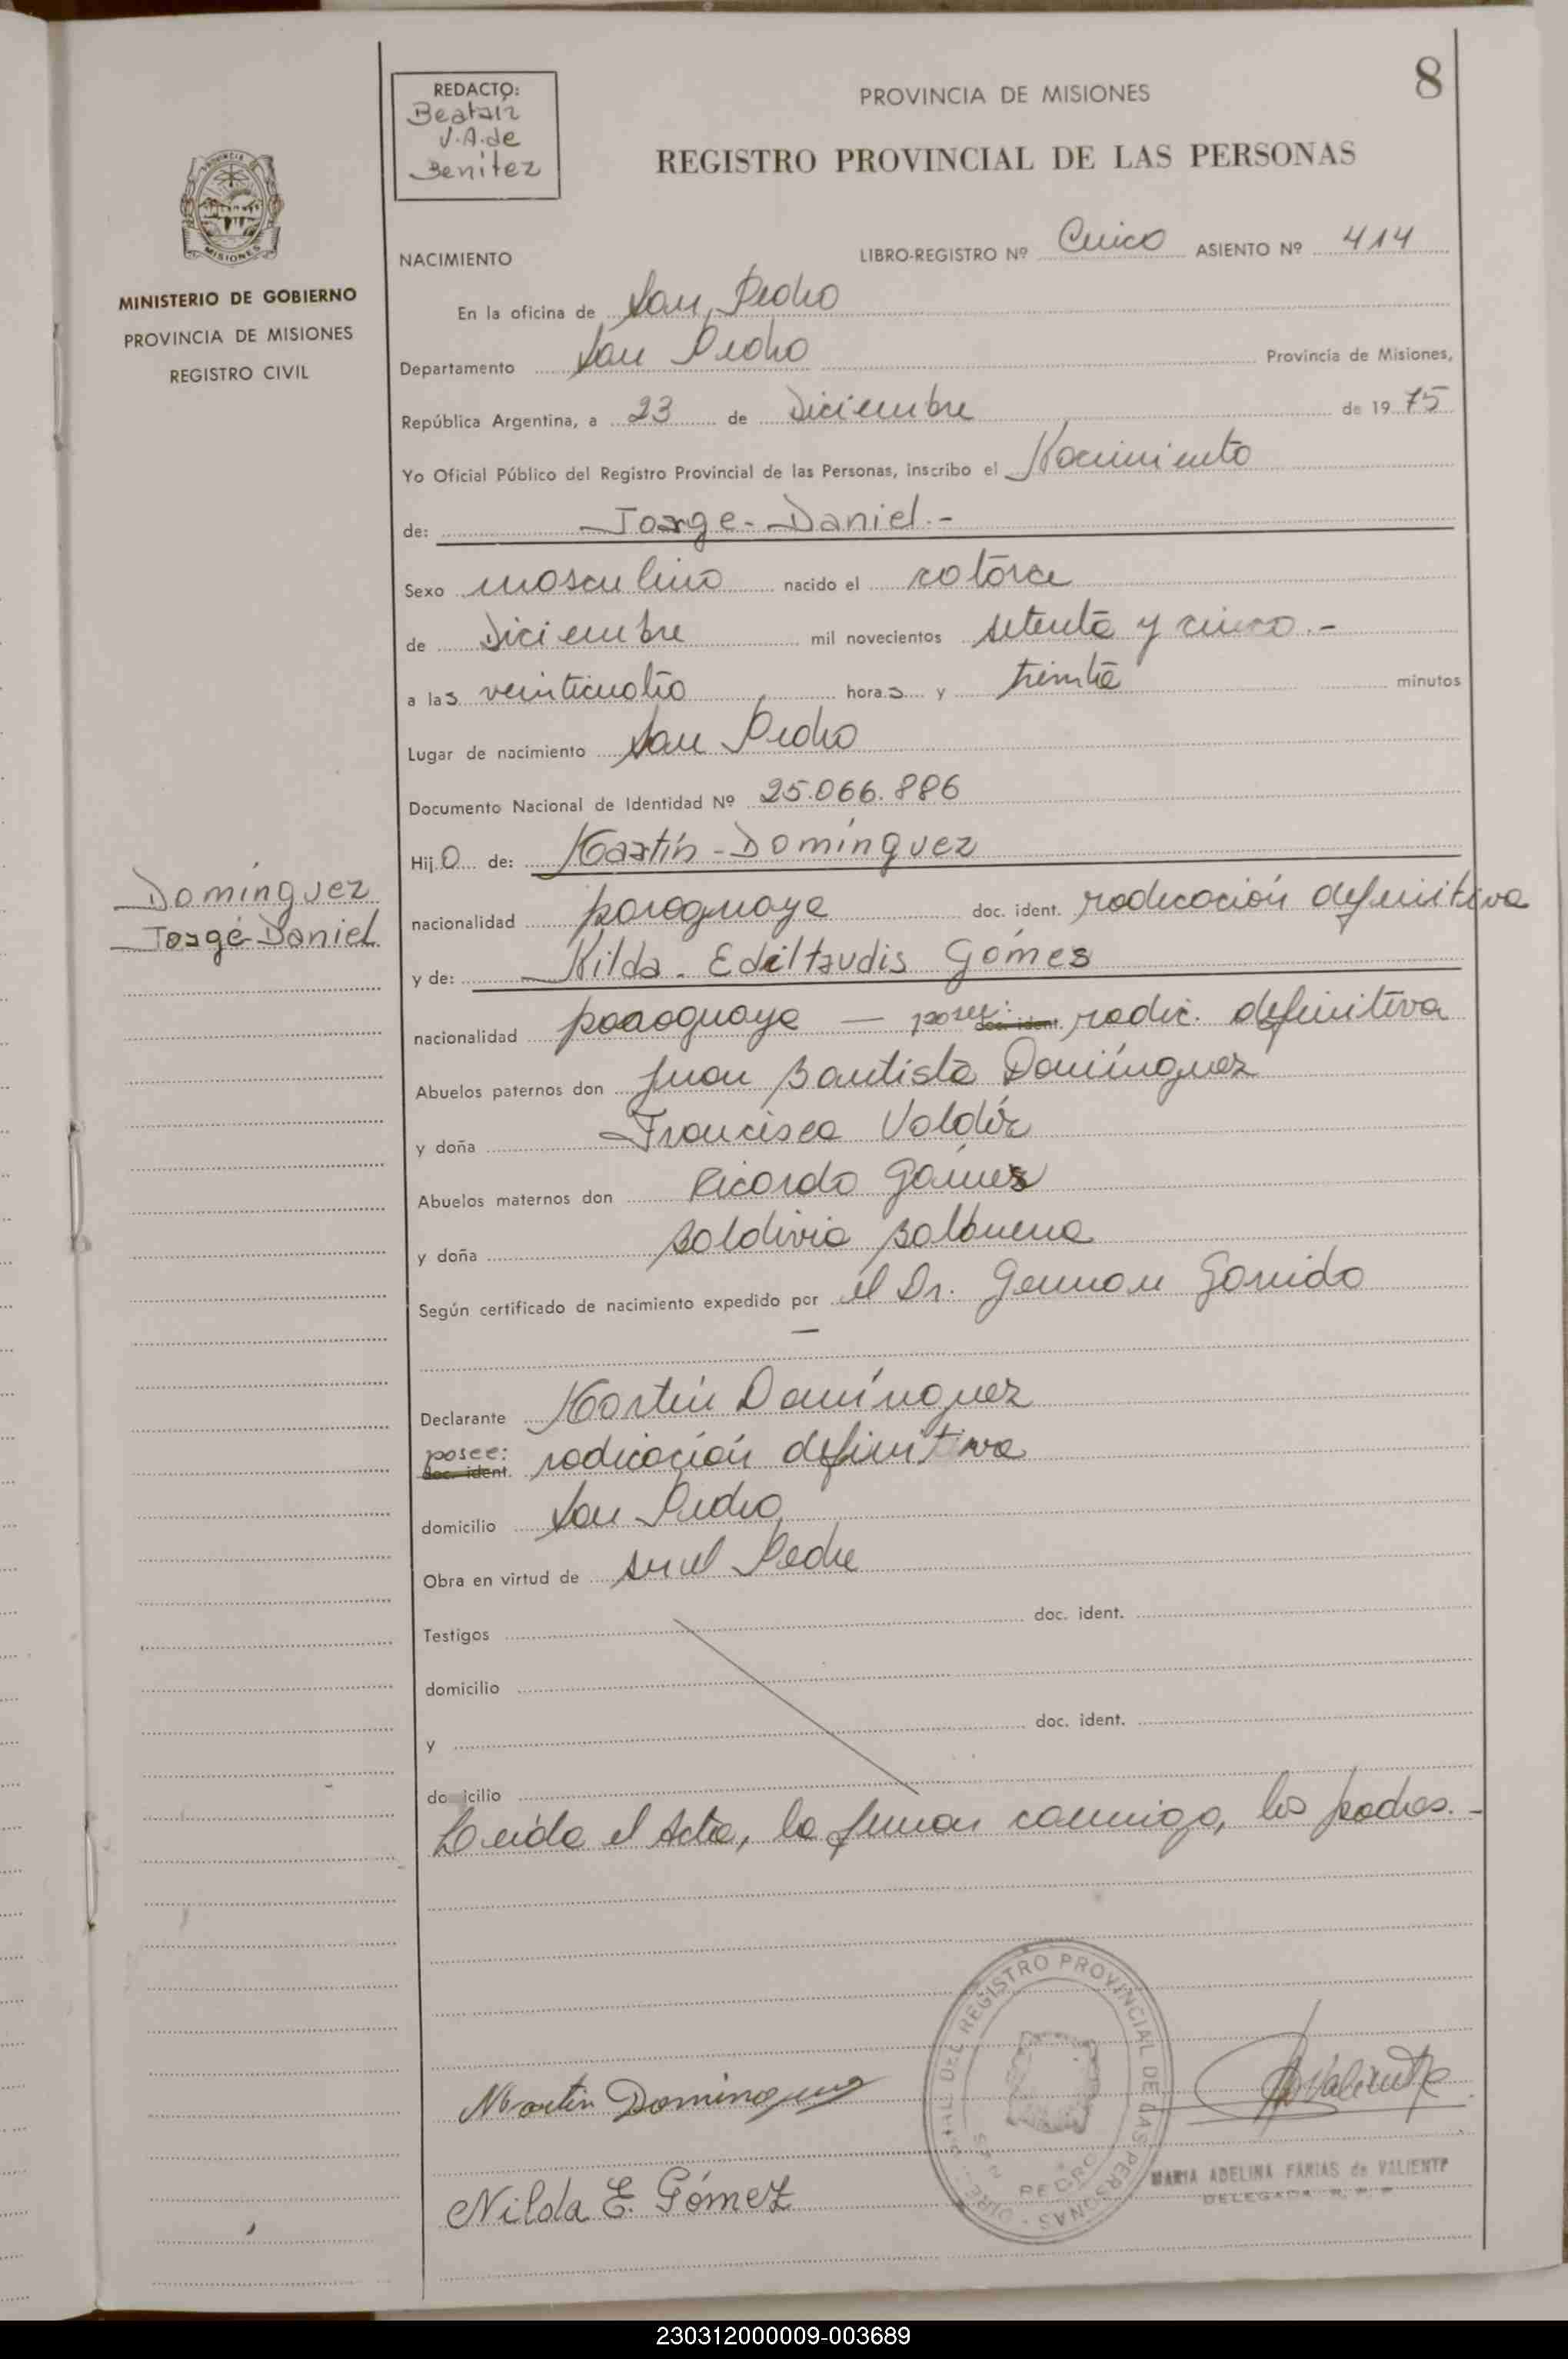 8
REDACTO:
Beatriz
V.A. de
Benítez
PROVINCIA DE MISIONES
REGISTRO PROVINCIAL DE LAS PERSONAS
MISIONES
MINISTERIO DE GOBIERNO
PROVINCIA DE MISIONES
REGISTRO CIVIL
NACIMIENTO LIBRO-REGISTRO Nº Cinco ASIENTO Nº 414
En la oficina de San Pedro
Departamento San Pedro Provincia de Misiones,
República Argentina, a 23 de Diciembre de 1975
Yo Oficial Público del Registro Provincial de las Personas, inscribo el Nacimiento
de: Jorge-Daniel.-
Sexo masculino nacido el catorce
de Diciembre mil novecientos setenta y cinco.-
a las veinticuatro horas y treinta minutos
Lugar de nacimiento San Pedro
Documento Nacional de Identidad Nº 25.066.886
Domínguez
Jorge Daniel
Hijo de: Martín-Domínguez
nacionalidad paraguaya doc. ident. radicación definitiva
y de: Nilda-Ediltrudis Gómes
nacionalidad paraguaya — posee: doc. ident. radic. definitiva
Abuelos paternos don Juan Bautista Domínguez
y doña Francisca Valdéz
Abuelos maternos don Ricardo Gómes
y doña Baldivia Balbuena
Según certificado de nacimiento expedido por el Dr. German Garrido
—
Declarante Martín Domínguez
posee: doc. ident. radicación definitiva
domicilio San Pedro
Obra en virtud de ser el Padre
Testigos doc. ident.
domicilio
y doc. ident.
do icilio
Leída el Acta, la firman conmigo, los padres.-
Martin Dominguez
Nilda E. Gómez
DEL REGISTRO PROVINCIAL DE LAS PERSONAS
SAN PEDRO
Valiente
MARIA ADELINA FARIAS de VALIENTE
DELEGADA R. P. P.
230312000009-003689